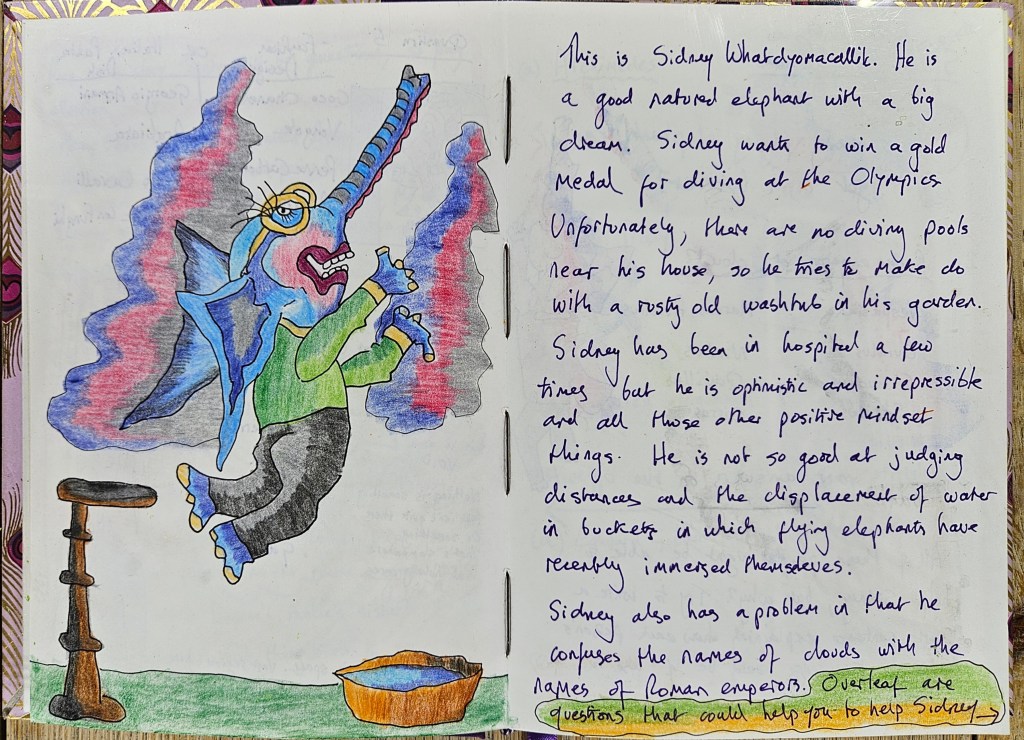 This is Sidney Whatdyomacallik. He is
a good natured elephant with a big
dream. Sidney wants to win a gold
medal for diving at the Olympics
Unfortunately, there are no diving pools
near his house, so he tries to make do
with a rusty old washtub in his garden.
Sidney has been in hospital a few
times but he is optimistic and irrepressible
and all those other positive mindset
things. He is not so good at judging
distances and the displacement of water
in buckets in which flying elephants have
recently immersed themselves.
Sidney also has a problem in that he
confuses the names of clouds with the
names of Roman emperors. Overleaf are
questions that could help you to help Sidney →